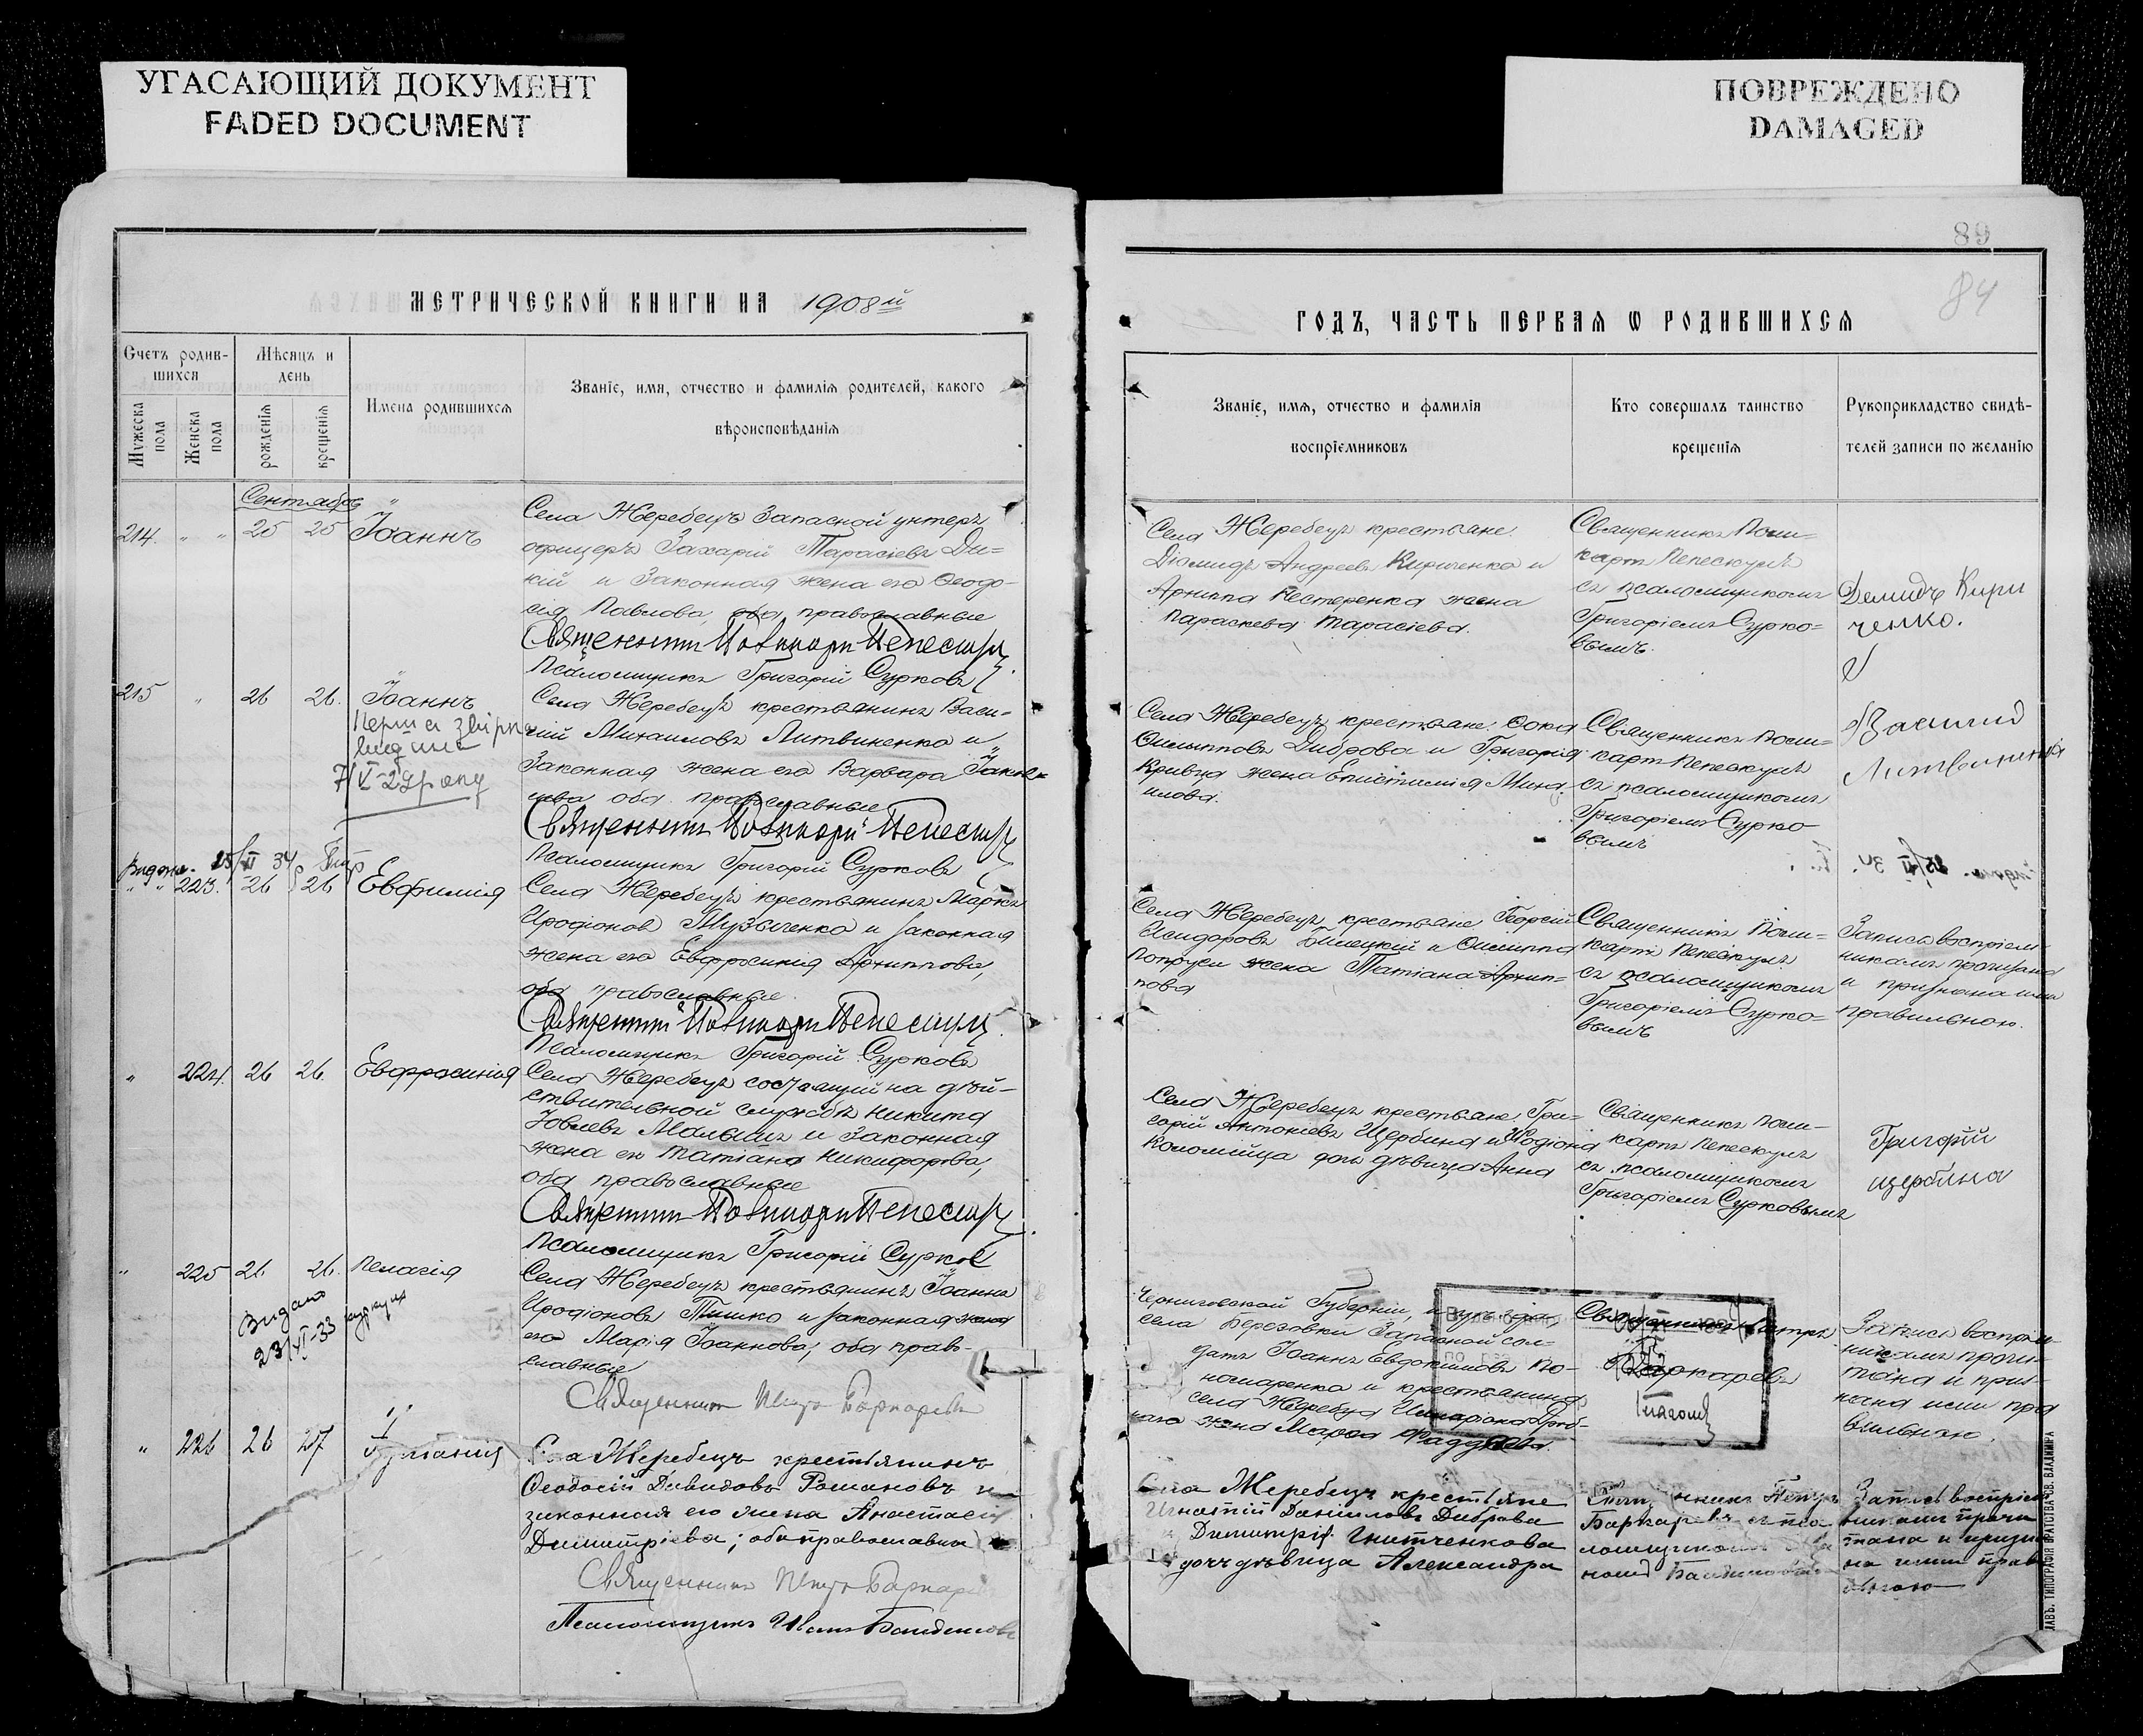 УГАСАЮЩИЙ ДОКУМЕНТ
FADED DOCUMENT
ПОВРЕЖДЕНО
DAMAGED
МЕТРИЧЕСКОЙ КНИГИ НА 1908й
Счетъ родив-
шихся
Мужеска
пола
Женска
пола
Мѣсяцъ и
день
рожденія
крещенія
Имена родившихся
Званіе, имя, отчество и фамилія родителей, какого
вѣроисповѣданія
Сентябрь
214. " " 25 25 Іоаннъ
Села Жеребецъ Запасной унтеръ
офицеръ Захарій Тарасіевъ Ди=
кій и Законная жена его Ѳеодо-
сія Павлова, оба православные
Псаломщикъ Григорій Сурковъ
215 " 26 26. Іоаннъ
7/V-29 року
Села Жеребецъ крестьянинъ Васи=
лій Михаиловъ Литвиненко и
Законная жена его Варвара Іаков
лева оба православные
Псаломщикъ Григорій Сурковъ
Видано. 25/VI 34
" " 223. 26 26 Евфимія
Села Жеребецъ крестьянинъ Маркъ
Иродіоновъ Музыченко и законная
жена его Евфросинія Архиппова,
оба православные.
Псаломщикъ Григорій Сурковъ
" 224. 26 26. Евфросинія
Села Жеребецъ состоящій на дѣй-
ствительной службѣ Никита
Іовлевъ Малышъ и Законная
жена его Татіана Никифорова,
оба православные
Псаломщикъ Григорій Сурковъ
" 225 26 26. Пелагія
Видано
23/VI-33
Села Жеребецъ крестьянинъ Іоаннъ
Иродіоновъ Тишко и законная жена
его Марія Іоаннова; оба право-
славные
Священникъ Петръ Баркаревъ
" 226 26 27
Села Жеребецъ крестьянинъ
Ѳеодосій Давидовъ Романовъ и
законная его жена Анастасія
Димитріева; оба православны
Священникъ Петръ Баркаревъ
Псаломщикъ
89
84
ГОДЪ, ЧАСТЬ ПЕРВАЯ Ѡ РОДИВШИХСЯ
Званіе, имя, отчество и фамилія
воспріемниковъ
Кто совершалъ таинство
крещенія
Рукоприкладство свидѣ-
телей записи по желанію
Села Жеребецъ крестьяне
Діомидъ Андреевъ Кириченко и
Архиппа Нестеренка жена
Параскева Тарасіева.
Священникъ Поли=
карпъ
съ псаломщикомъ
Григоріемъ Сурко=
вымъ.
Демидъ Кири
ченко.
Села Жеребецъ крестьяне Ѳока
Филипповъ Диброва и Григорія
Кривца жена Епистимія Миха
илова.
Священникъ Поли=
карпъ
съ псаломщикомъ
Григоріемъ Сурко
вымъ
Василий
Литвиненко
Села Жеребецъ крестьяне Георгій
Исидоровъ Билецкій и Филиппа
жена Татіана Архип=
пова
Священникъ Поли=
карпъ
съ псаломщикомъ
Григоріемъ Сурко=
вымъ
Запись воспріем-
никамъ прочитана
и признана ими
правильною.
Села Жеребецъ крестьяне Гри=
горій Антоніевъ Щербина и Иродіона
Коломійца дочь дѣвица Анна
Священникъ Поли-
карпъ
съ псаломщикомъ
Григоріемъ Сурковымъ
Григорій
щербина
Черниговской Губерніи,
села Березовки Запасной сол=
датъ Іоаннъ Евдокимовъ По-
номаренко и крестьянина
села Жеребца
жена Марѳа Ѳаддеева.
Священникъ Петръ
Баркаревъ
Запись воспріем
никамъ прочи-
тана и приз-
нана ими пра
вильною.
Села Жеребецъ крестьяне
Игнатій Даніиловъ Диброва
и Димитрія Гнитченкова
дочь дѣвица Александра
Священникъ Петръ
Запись воспріем
никамъ прочи
тана и призна
на ими прави
льною
ТИПОГРАФІЯ БРАТСТВА СВ. ВЛАДИМІРА